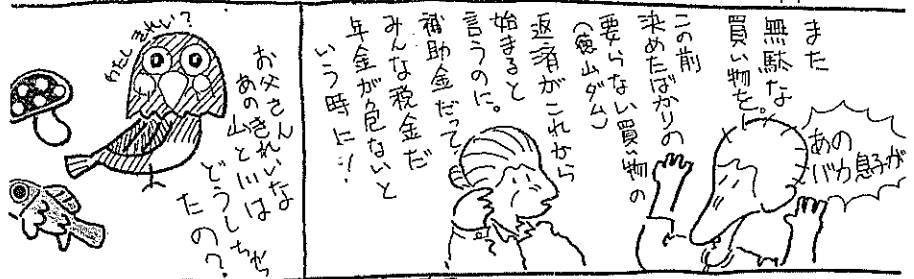 また
無駄な
買い物を。
あの
バカ息子が
この前
決めたばかりの
要らない買い物の
(徳山ダム)
返済がこれから
始まると
言うのに。
補助金だって
みんな税金だ
年金が危ないと
いう時に!!
わたしきれい?
お父さん
きれいな
あの山と川は
どうしちゃっ
たの?